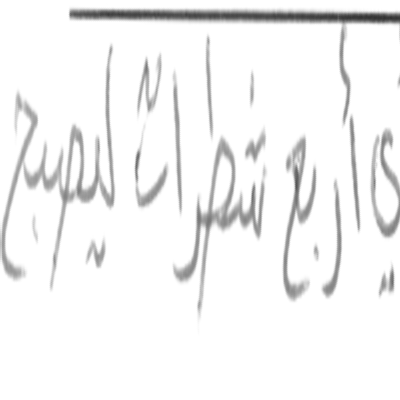 ي أربع شطرات ليصبح